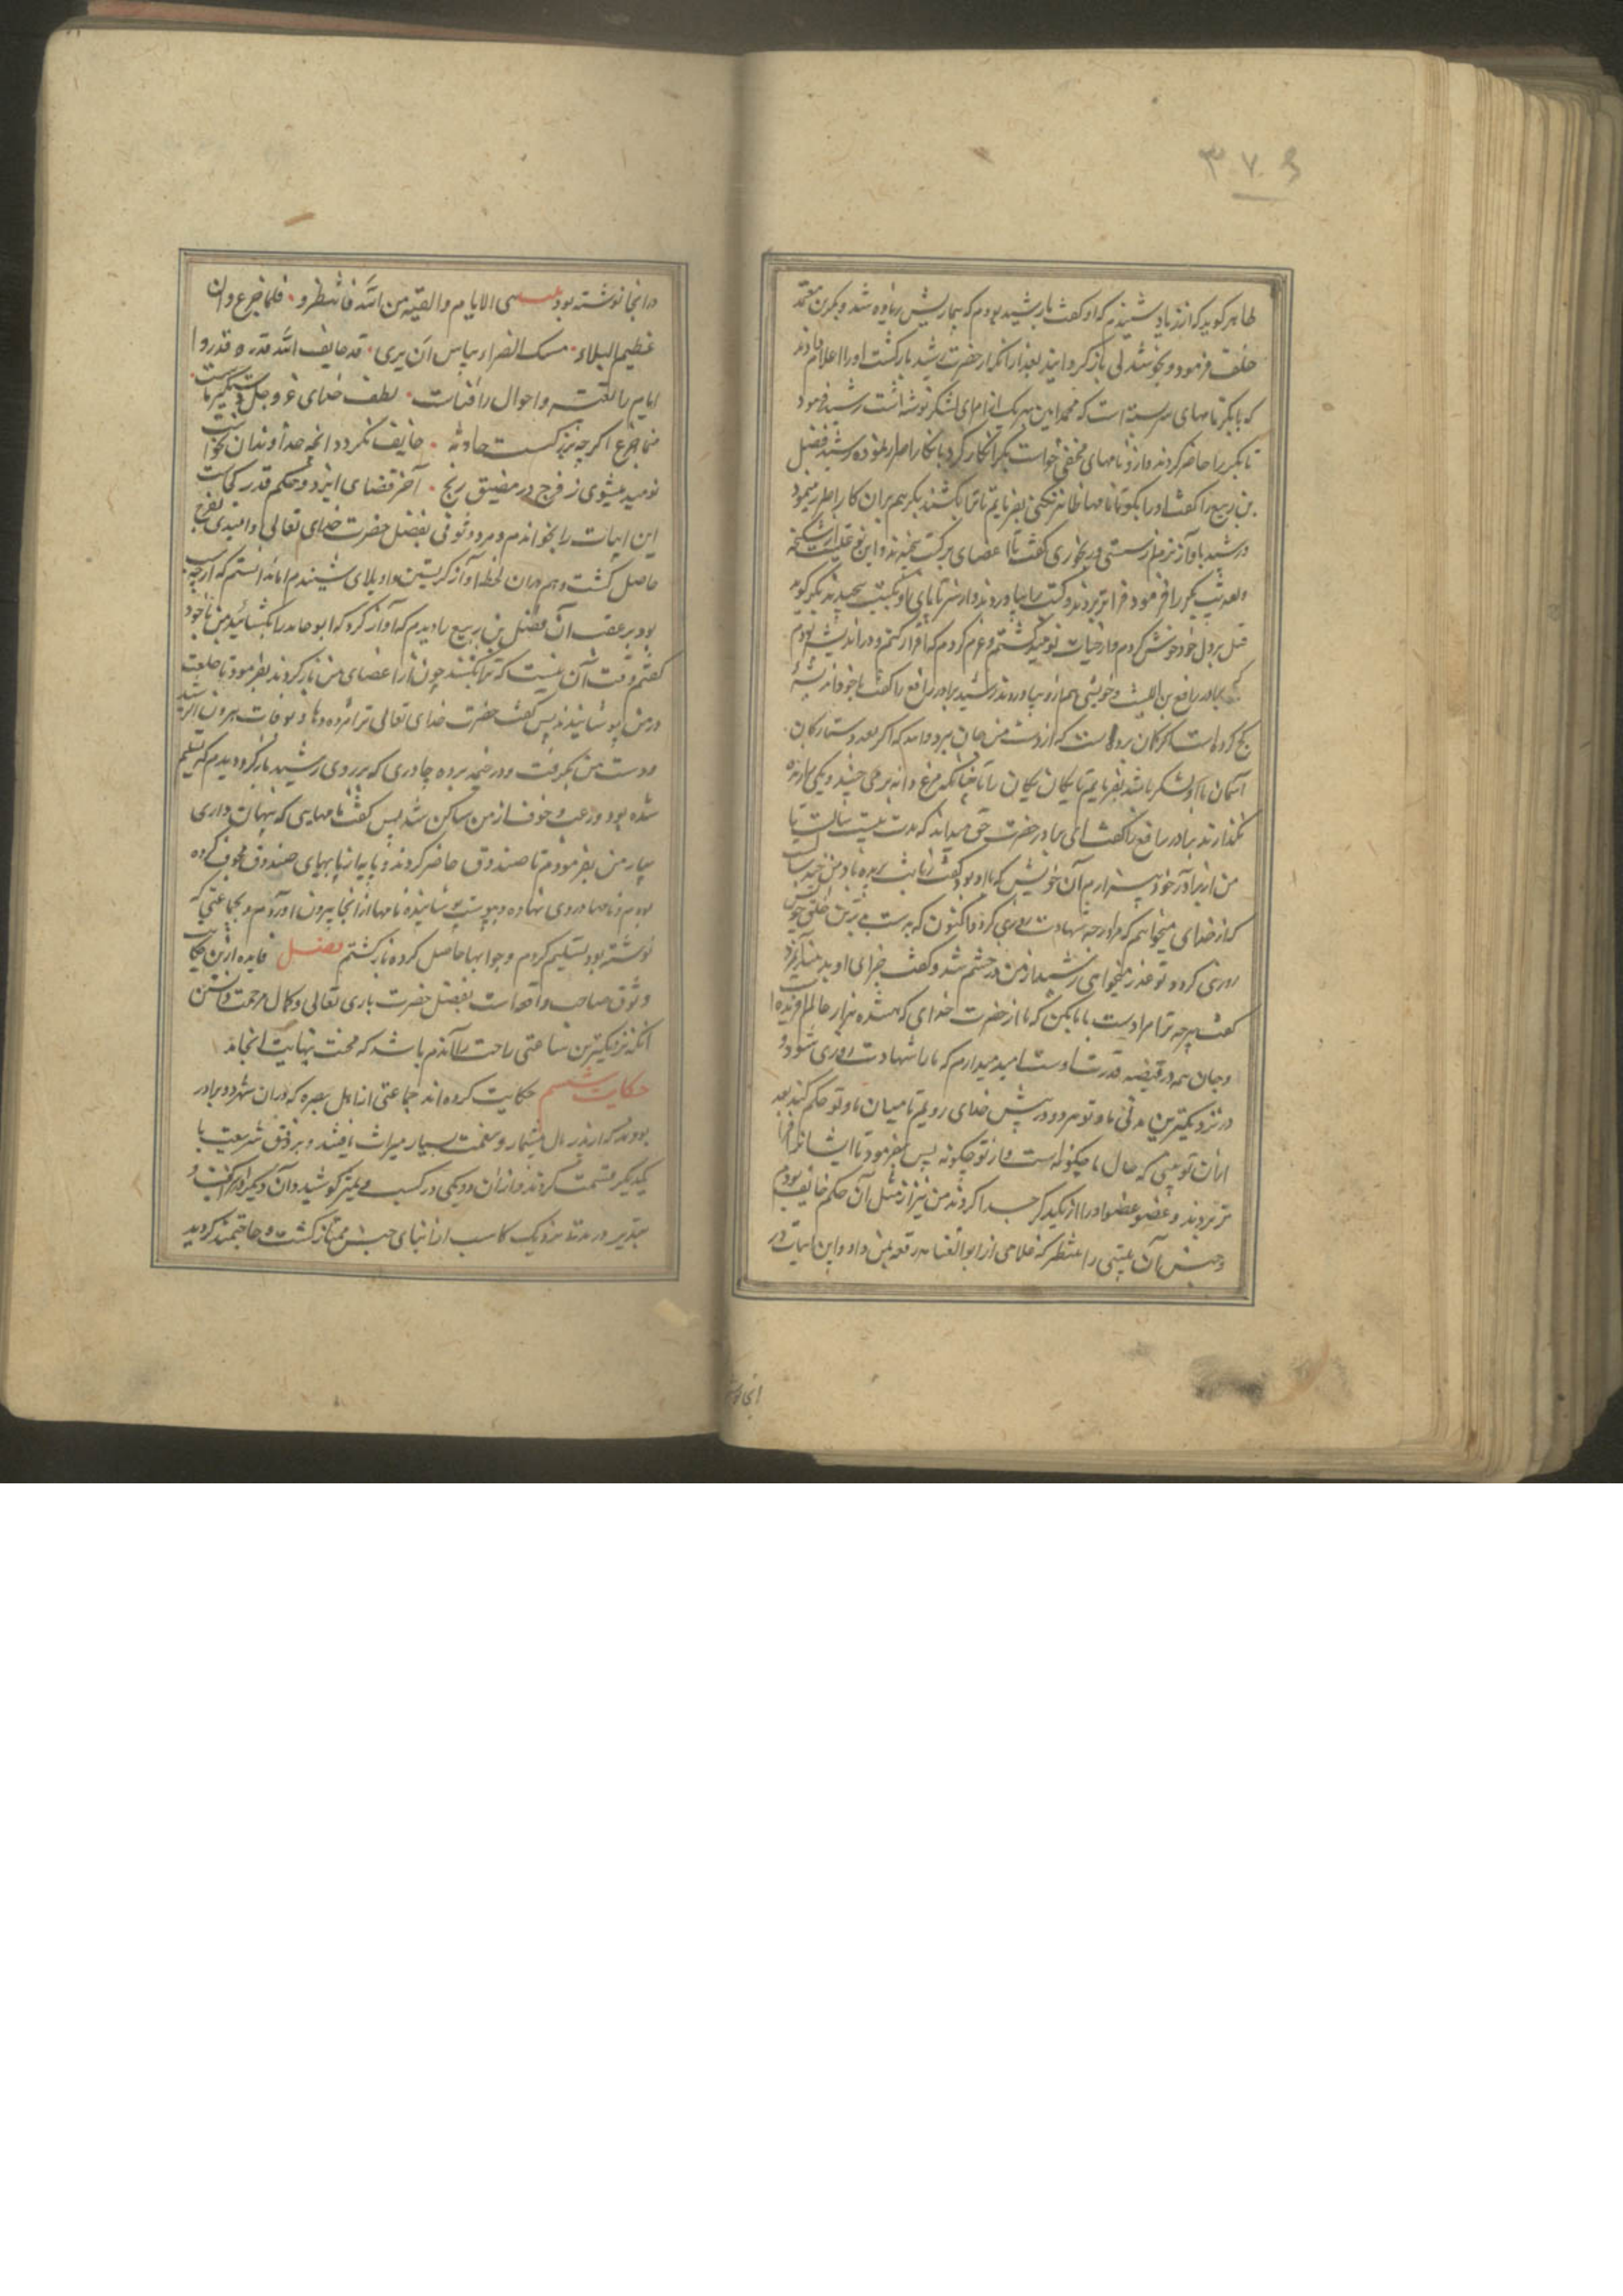 ۳۰۷
طاهر گوید که از زیاد شنیدم که او گفت با رشید بودم که بیماریش زیاده شد و بکر بن معتمد
خلقت فرمود و بخوشدلی باز گردانید بعد از آنکه از حضرت رشید بازگشت او را اعلام دادند
که با بکر نامهای سربسته است که محمد امین بهر یک از امرای لشکر نوشته است رشید فرمود
تا بکر را حاضر کردند و از و نامهای مخفی خواست بکر انکار کرد با نکار اصرار نموده رشید فضل
بن ربیع را گفت او را بگو تا نامها ظاهر کنی بفرمایم تا ترا بکشند بکر هم بران کار اصرار مینمود
رشید باواز نرم از سستی و رنجوری گفت تا اعضای بر کتب
بکر را فرمود فراتر بردند و کتب را بیاوردند و از سر تا پای او بکتب پیچیدند بکر گوید
قتل بر دل خود خوش کردم و از حیات نومید گشتم و عزم کردم که اقرار کنم و در اندیشه بودم
که برادر رافع بن اللیث و خویشی هم از و بیاوردند رشید برادر رافع را گفت
کج کرده است گمان برده است که از دست من جان برد و اند که اگر بعدد ستارگان
آسمان با او لشکر باشد بفرمایم تا یکان یکان را تا چنانکه مرغ دانه بر می چیند و یکی را زنده
نگذارند برادر رافع را گفت ای برادر حضرت حق میداند که مدت بیست سالست تا
من از برادر خود بیزارم آن خویش که با او بود گفت
که از خدای میخواهم که مرا درجه شهادت روزی کرد و اکنون که بدست بدترین خلق خویش
روزی کرد و تو عذر میخواهی رشید از من در خشم شد و گفت جزای او بدهید
گفت هرچه ترا مرادست با ما بکن که ما از حضرت خدای که هشده هزار عالم آفریده
و جان همه در قبضه قدرت اوست امید میدارم که ما را شهادت روزی شود و
در نزدیکترین مدتی ما و تو هر دو در پیش خدای رویم تا میان ما و تو حکم کند بعد
از آن تو ببینی که حال ما چگونه است و از تو چگونه پس بفرمود تا ایشانرا
تر بردند و عضو عضو او را از یکدیگر جدا کردند من نیز از مثل آن حکم خایف بودم
و جنس آن بلیتی را منتظر که غلامی از ابو العتاهیه رقعه بمن داد و این ابیات در
انجا نوشته
در انجا نوشته بود عسی الایام والقیه من الله فانتظرو فلما جزع وان
عظیم البلاء مسک الضر او بباس ان یری قد خایف الله قدره قدروا
ایام را لقته و احوال را فنات لطف خدای عز و جل دستگیر ماست
منما جزع اگر چه بزرگست حادثه خایف نگردد انچه خداوند ان نخواست
نومید میشوی ز فرج در مضیق رنج آخر قضای ایزد و حکم قدر کجاست
این ابیات را بخواندم و مرا وثوقی بفضل حضرت خدای تعالی و امیدی بفرج
حاصل گشت و هم دران لحظه آواز گریستن و واویلای شنیدم اما ندانستم که از چه سبب
بود بر عقب آن فضل بن ربیع را دیدم که آواز کرد که ابو حامد را بکشائید من با خود
گفتم وقت آن نیست که ترا کنند چون از اعضای من باز کردند بفرمود تا خلعت
در من پوشانیدند پس گفت حضرت خدای تعالی ترا مژده دهاد بوفات هرون الرشید
و دست من بگرفت و در خیمه برده چادری که بر روی رشید باز کرد و دیدم که تسلیم
شده بود و رعب و خوف از من ساکن شد پس گفت نامهایی که پنهان داری
بیار من بفرمودم تا صندوق حاضر کردند و پایها را پایهای صندوق مجوف کرده
بودم و نامها در وی نهاده و بپوست پوشانیده نامها از انجا بیرون اوردم و بجماعتی که
نوشته بود تسلیم کردم و جوابها حاصل کرده باز گشتم فصل فایده ازین حکایت
وثوق صاحب واقعه است بفضل حضرت باری تعالی و کمال مرحمت و دانستن
انکه نزدیکترین ساعتی راحت را آندم باشد که محنت بنهایت انجامد
حکایت ششم حکایت کرده اند جماعتی از اهل بصره که در ان شهر دو برادر
بودند که از پدر مال بیشمار و نعمت بسیار میراث یافتند و بر وفق شریعت با
یکدیگر قسمت کردند و از ان دو یکی در کسب و پیشه کوشید و آن دیگر اسراف
تبذیر در مدت نزدیک کاسب از ابنای جنس ممتاز گشت و حاجتمند گردید